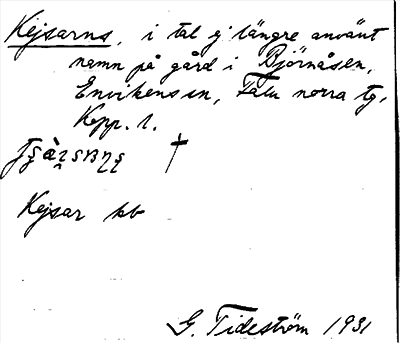 Kejsarns, i tal ej längre använt
namn på gård i Björnåsen,
Envikens sn, Falu norra tg,
Kopp. l.
†
Kejsar hb
G. Tideström 1931